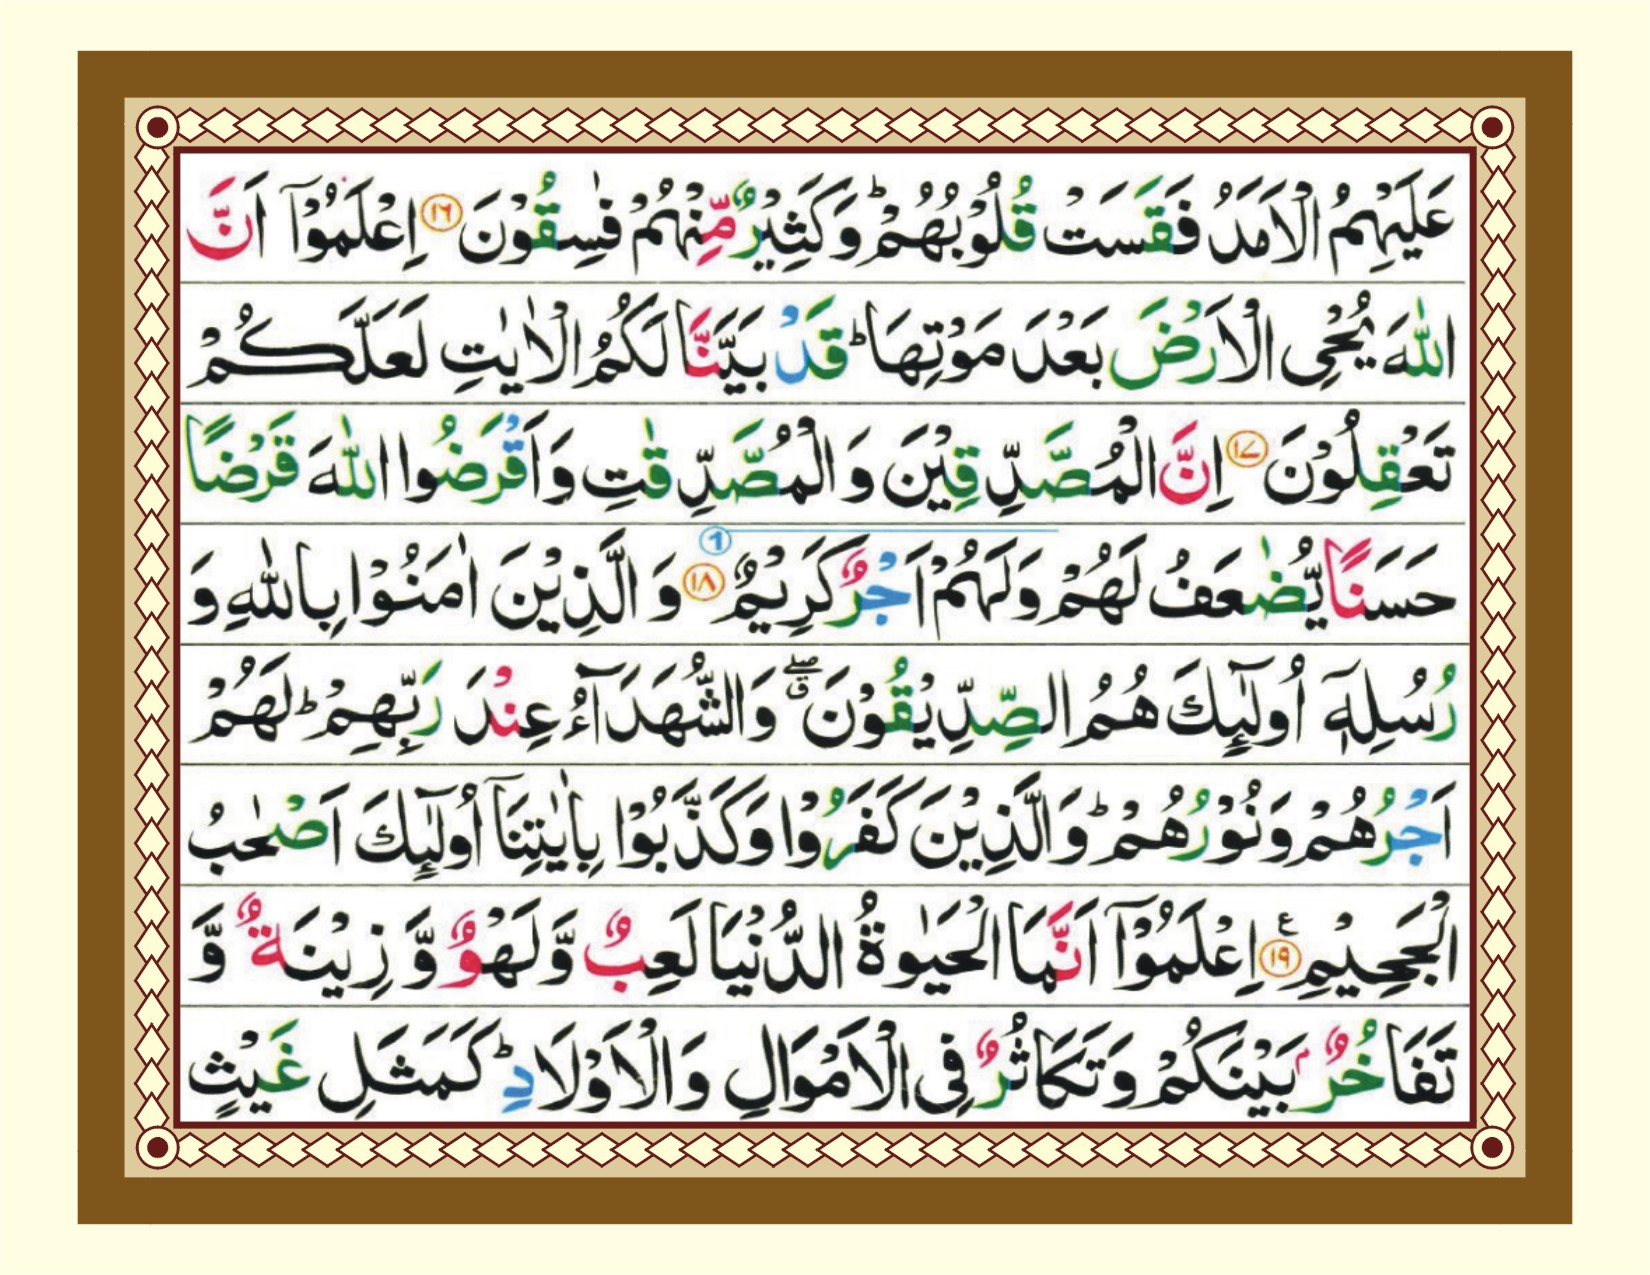 عَلَیْهِمُ الْاَمَدُ فَقَسَتْ قُلُوْبُهُمْ ؕ وَ كَثِیْرٌ مِّنْهُمْ فٰسِقُوْنَ ﴿۱۶﴾ اِعْلَمُوْۤا اَنَّ
اللّٰهَ یُحْیِ الْاَرْضَ بَعْدَ مَوْتِهَا ؕ قَدْ بَیَّنَّا لَكُمُ الْاٰیٰتِ لَعَلَّكُمْ
تَعْقِلُوْنَ ﴿۱۷﴾ اِنَّ الْمُصَّدِّقِیْنَ وَ الْمُصَّدِّقٰتِ وَ اَقْرَضُوا اللّٰهَ قَرْضًا
حَسَنًا یُّضٰعَفُ لَهُمْ وَ لَهُمْ اَجْرٌ كَرِیْمٌ ﴿۱۸﴾ 1 وَ الَّذِیْنَ اٰمَنُوْا بِاللّٰهِ وَ
رُسُلِهٖۤ اُولٰٓىِٕكَ هُمُ الصِّدِّیْقُوْنَ ۖۗ وَ الشُّهَدَآءُ عِنْدَ رَبِّهِمْ ؕ لَهُمْ
اَجْرُهُمْ وَ نُوْرُهُمْ ؕ وَ الَّذِیْنَ كَفَرُوْا وَ كَذَّبُوْا بِاٰیٰتِنَاۤ اُولٰٓىِٕكَ اَصْحٰبُ
الْجَحِیْمِ ﴿۱۹﴾ ع اِعْلَمُوْۤا اَنَّمَا الْحَیٰوةُ الدُّنْیَا لَعِبٌ وَّ لَهْوٌ وَّ زِیْنَةٌ وَّ
تَفَاخُرٌۢ بَیْنَكُمْ وَ تَكَاثُرٌ فِی الْاَمْوَالِ وَ الْاَوْلَادِ ؕ كَمَثَلِ غَیْثٍ